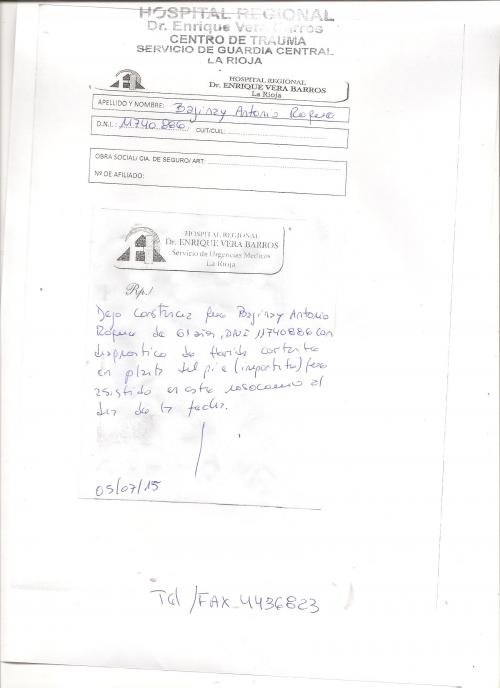 HOSPITAL REGIONAL
Dr. Enrique Vera Barros
CENTRO DE TRAUMA
SERVICIO DE GUARDIA CENTRAL
LA RIOJA
HOSPITAL REGIONAL
Dr. ENRIQUE VERA BARROS
La Rioja
APELLIDO Y NOMBRE: Antonia
D.N.I.: 11740.886 CUIT/CUIL:
OBRA SOCIAL/ CIA. DE SEGURO/ ART:
Nº DE AFILIADO:
HOSPITAL REGIONAL
Dr. ENRIQUE VERA BARROS
Servicio de Urgencias Medicas
La Rioja
Rp./
Dejo constancia que Antonia
de 61 años, DNI 11740886 con
diagnostico de herida cortante
en planta del pie fue
asistido en este nosocomio el
dia de la fecha.
05/07/15
Tel/FAX 4436823